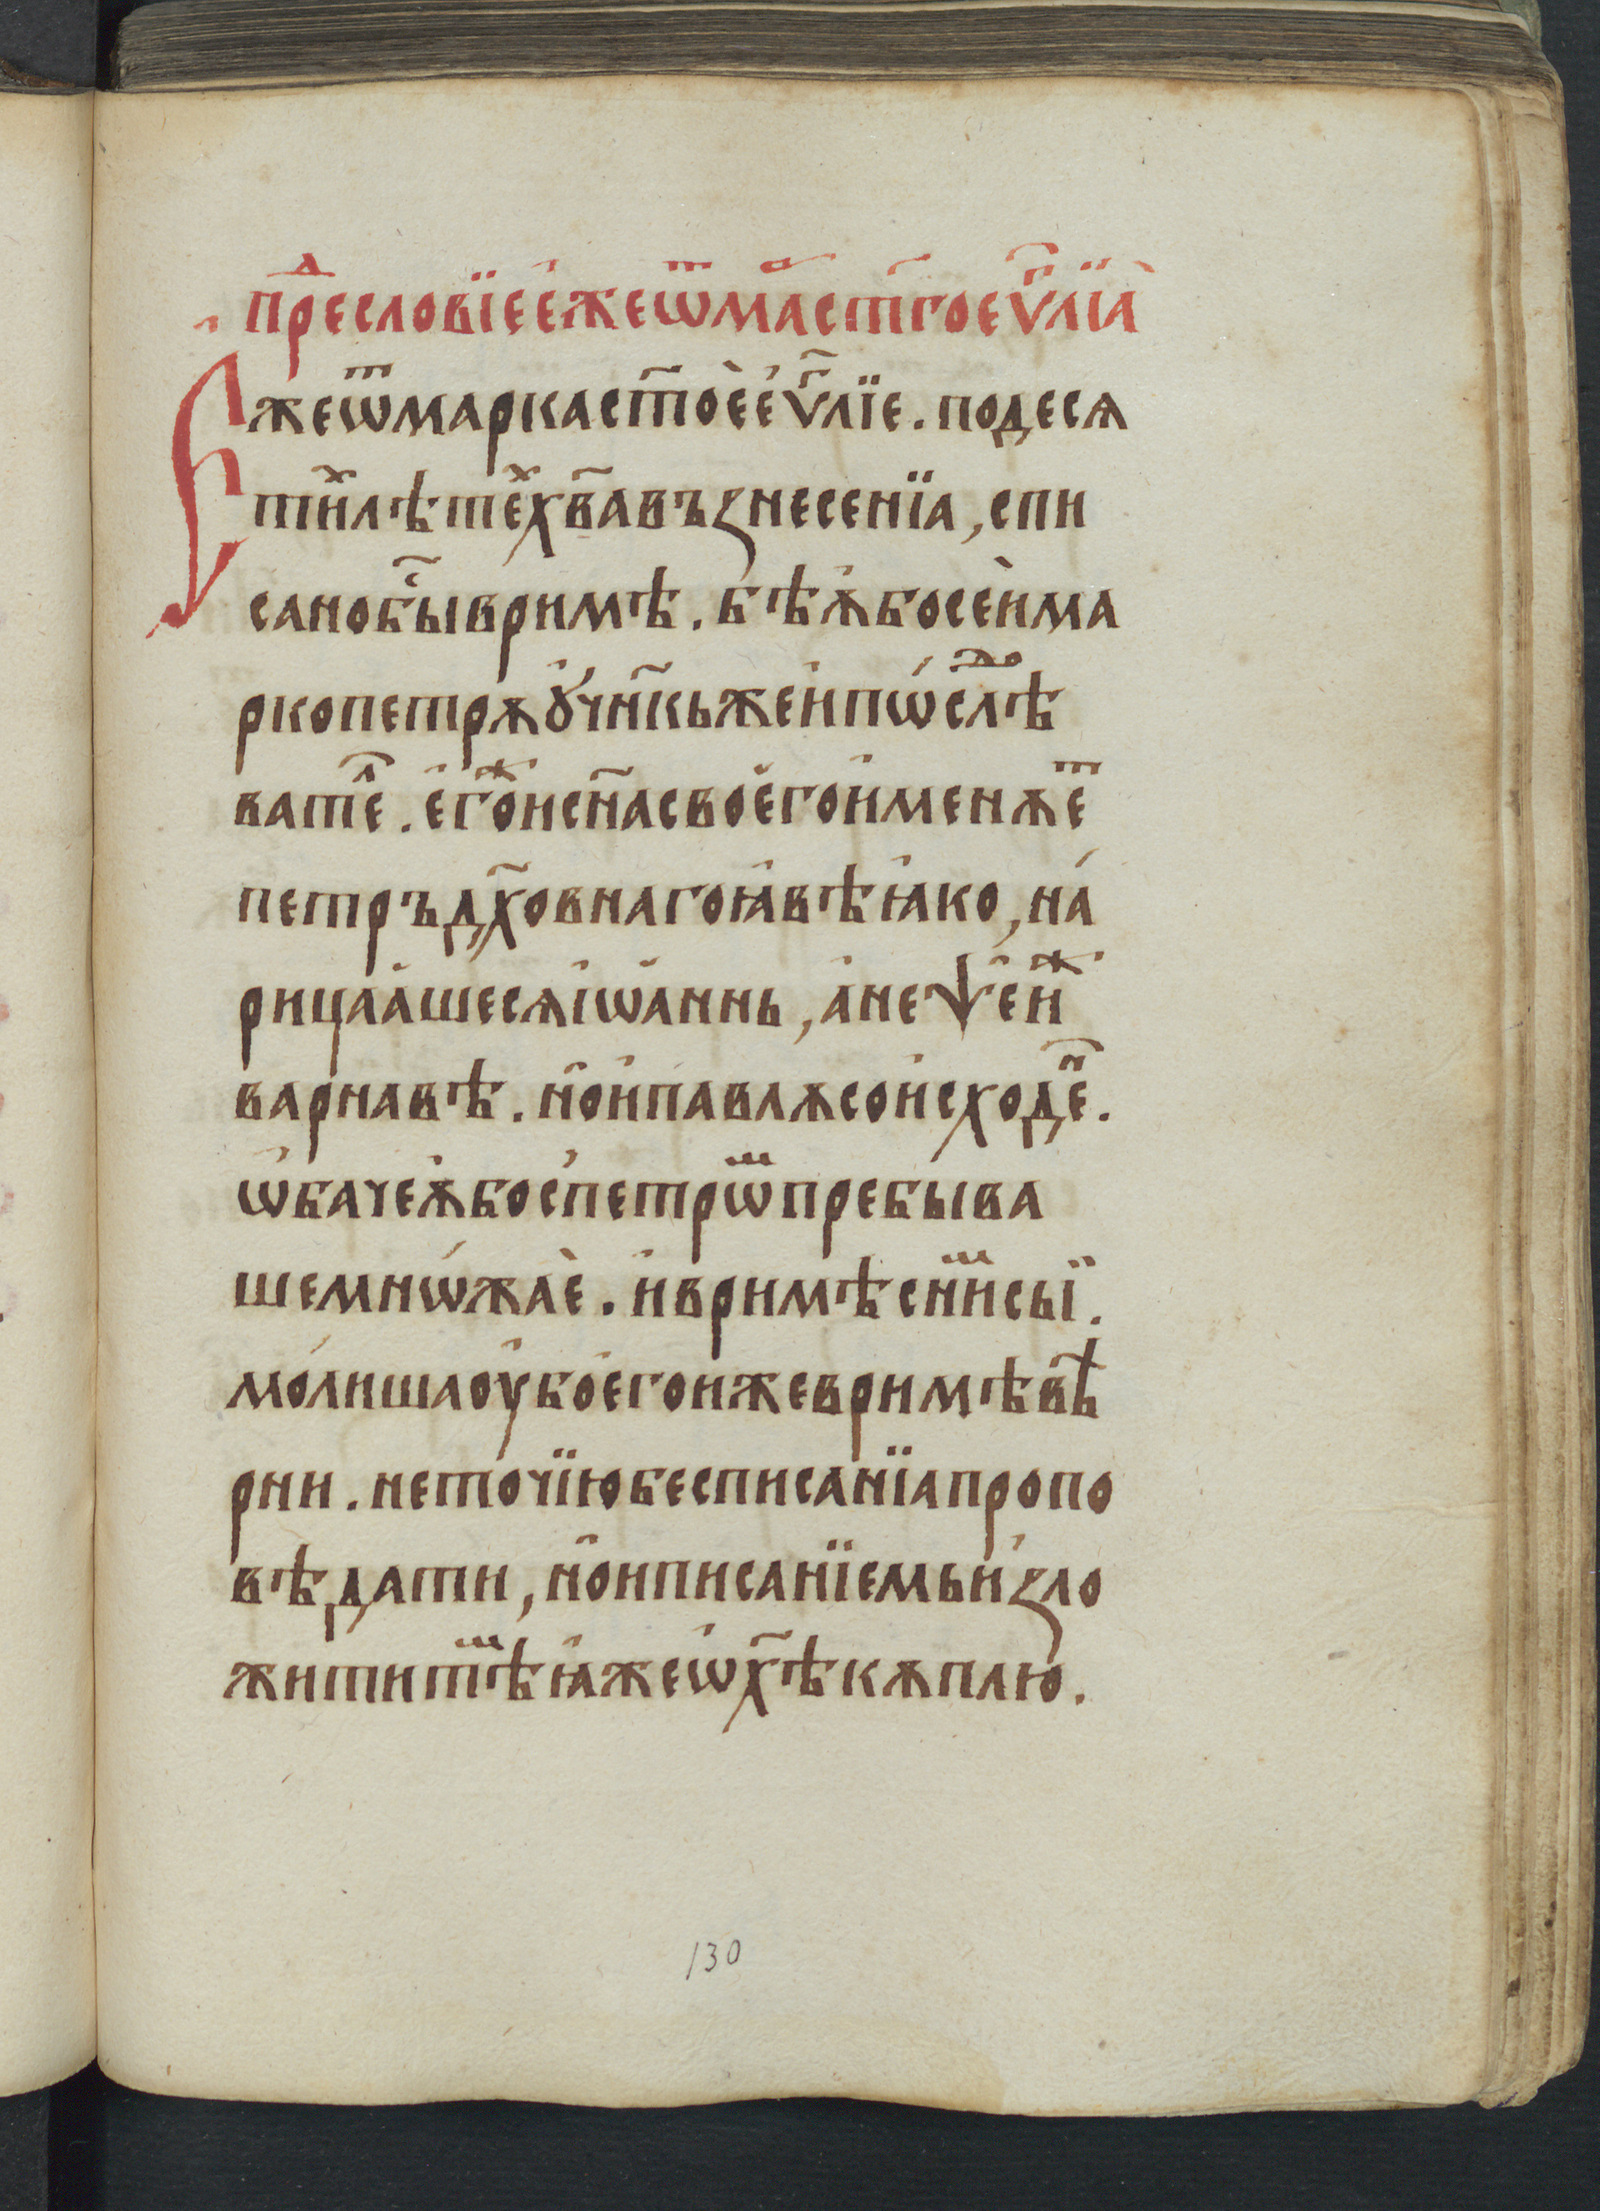 прⷣесловїе е́же ѿ маⷬ ст҃го еѵⷢ҇лїа̀
Еже ѿ марка ст҃оѐ е́ѵⷢ҇лїе. по деся
тиⷯ лѣтеⷯ хв҃а възнесенїа, спи
сано быⷭ҇ въ римѣ. бѣ́ ѫбо сеѝ ма
рко петрѫ ᲂу҆чн҃кь же и҆ пѡ́слѣⷣ
ватеⷧ. е҆гоⷤ и сн҃а свое҆го и҆менѫеⷮ
петръ дх҃овнаго ꙗ҆вѣ ꙗ҆ко, на́
рицаа҆шеся і҆ѡ҆аннь, а҆неѱе́й же
варнавѣ. но̑ и҆ павлѫ со и҆сходеⷩ.
ѡ҆баче ѫ҆бо с петрѡⷨ пребыва
ше мнѡ́жаѐ. и҆ в римѣ с ниⷨ сыї.
мо́лиша оу҆бо е҆го иже в римѣ вѣ
рни. не точїю бес писанїа пропо
вѣдати, но̑ и писанїемь и҆зло
жити тѣⷨ ꙗ҆же ѡ҆ хⷭ҇ѣ кѫплю.
130